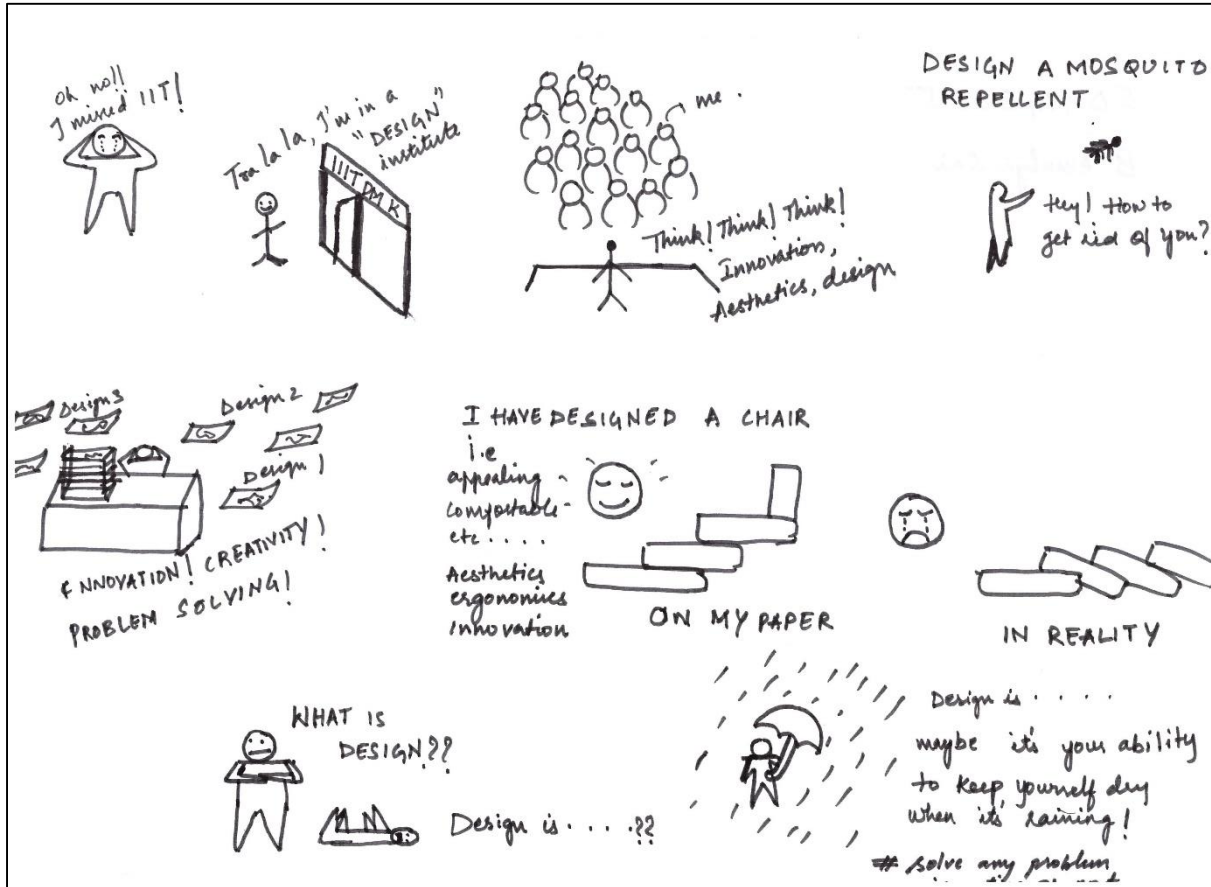 Oh no!!
I missed IIT!
Tra la la, I'm in a
"DESIGN"
institute
IIITDM K
me.
Think! Think! Think!
Innovation,
Aesthetics, design
DESIGN A MOSQUITO
REPELLENT
Hey! How to
get rid of you?
Design 3
Design 2
Design 1
INNOVATION! CREATIVITY!
PROBLEM SOLVING!
I HAVE DESIGNED A CHAIR
i.e
appealing
comfortable
etc....
Aesthetics
ergonomics
innovation
ON MY PAPER
IN REALITY
WHAT IS
DESIGN??
Design is.....??
Design is.....
maybe it's your ability
to keep yourself dry
when it's raining!
# solve any problem